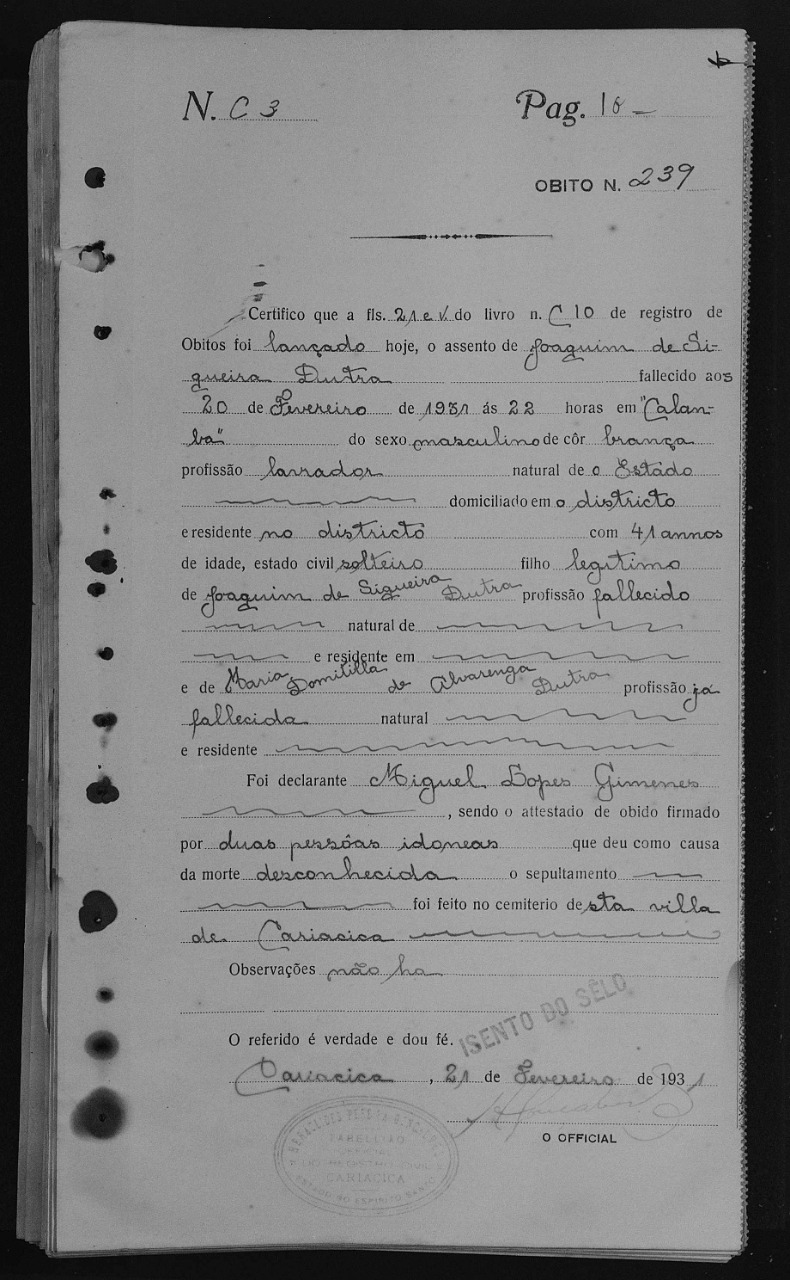 N. C 3 Pag. 10
OBITO N. 239
Certifico que a fls. 21 e v. do livro n. C 10 de registro de
Obitos foi lançado hoje, o assento de Joaquim de Si-
queira Dutra fallecido aos
20 de Fevereiro de 1931 ás 22 horas em "Calan-
ba" do sexo masculino de côr branca
profissão lavrador natural de o Estado
domiciliado em o districto
e residente no districto com 41 annos
de idade, estado civil solteiro filho legitimo
de Joaquim de Siqueira Dutra profissão fallecido
natural de
e residente em
e de Maria Domitilla de Alvarenga Dutra profissão já
fallecida natural
e residente
Foi declarante Miguel Lopes Gimenes
, sendo o attestado de obido firmado
por duas pessôas idoneas que deu como causa
da morte desconhecida o sepultamento
foi feito no cemiterio desta villa
de Cariacica
Observações não ha
ISENTO DO SÊLO
O referido é verdade e dou fé.
Cariacica, 21 de Fevereiro de 1931
O OFFICIAL
TABELLIÃO
CARIACICA
ESTADO DO ESPIRITO SANTO